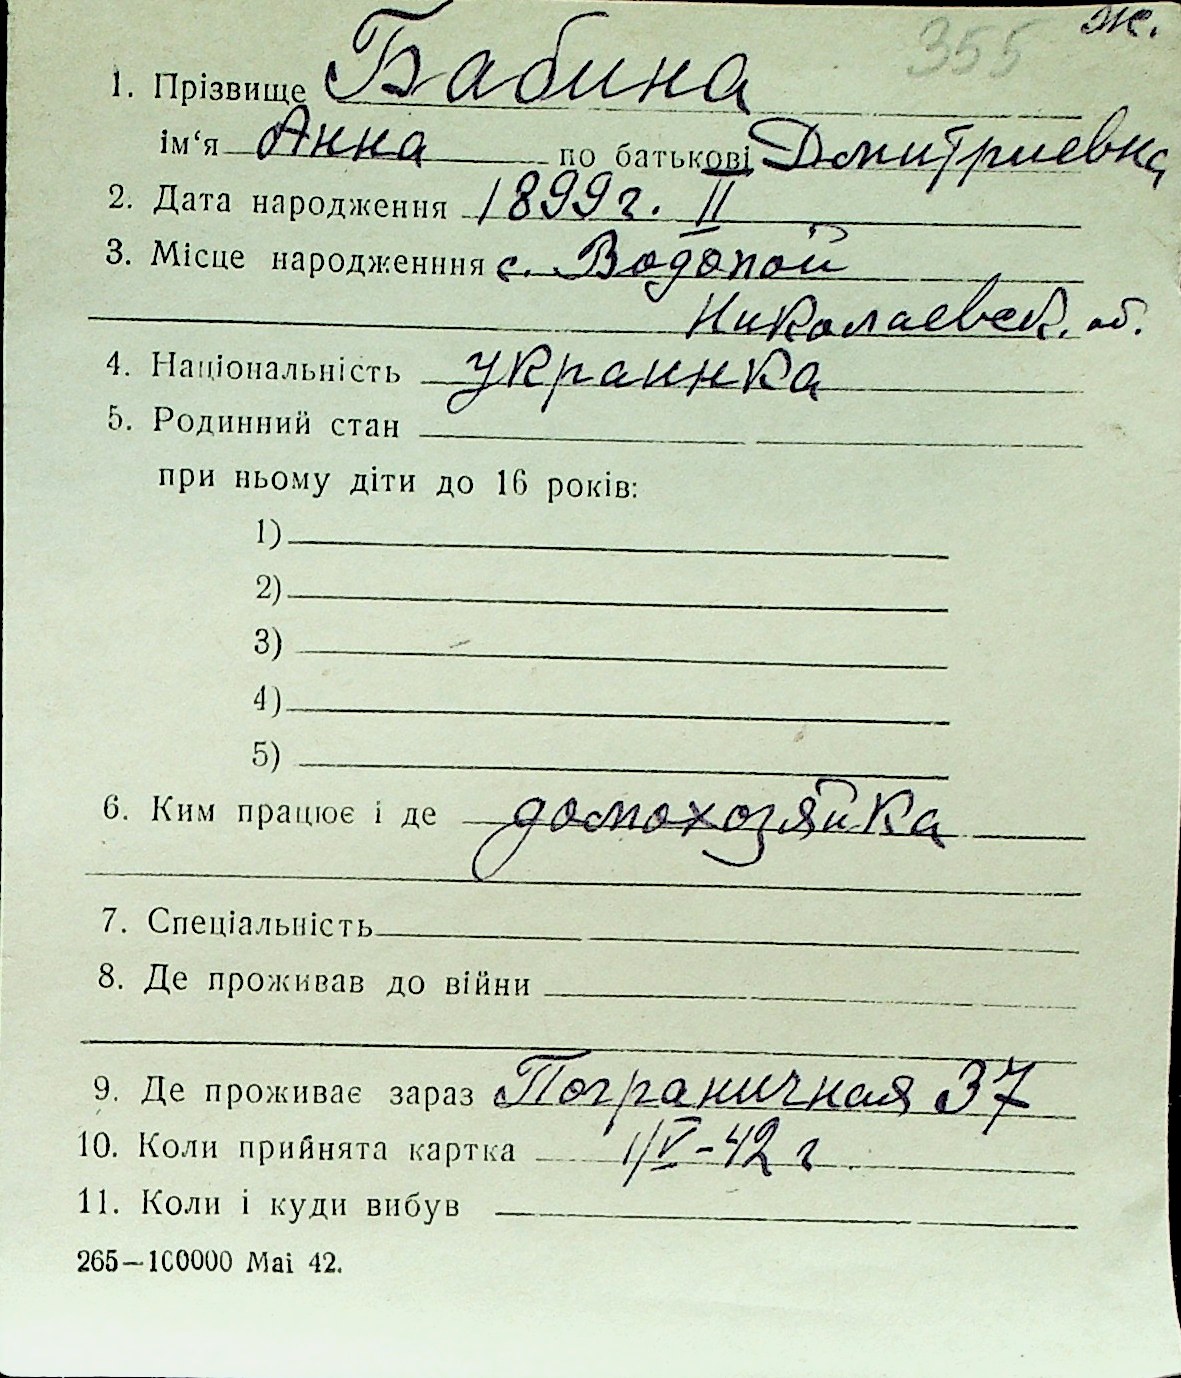 355 ж.
1. Прізвище Бабина
ім‘я Анна по батькові Дмитриевна
2. Дата народження 1899 г. II
3. Місце народженння с. Водопой
Николаевск. об.
4. Національність украинка
5. Родинний стан
при ньому діти до 16 років:
1)
2)
3)
4)
5)
6. Ким працює і де домохозяйка
7. Спеціальність
8. Де проживав до війни
9. Де проживає зараз Пограничная 37
10. Коли прийнята картка 1/V-42 г
11. Коли і куди вибув
265—100000 Mai 42.